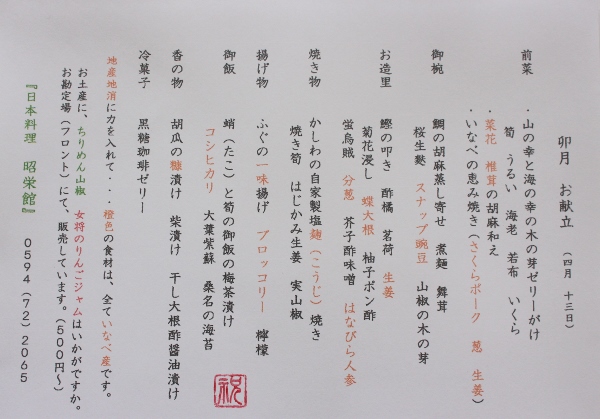 卯月 お献立 (四月 十三日)
前菜 ・山の幸と海の幸の木の芽ゼリーがけ
筍 うるい 海老 若布 いくら
・菜花 椎茸の胡麻和え
・いなべの恵み焼き(さくらポーク 葱 生姜)
御椀 鯛の胡麻蒸し寄せ 煮麺 舞茸
桜生麩 スナップ豌豆 山椒の木の芽
お造里 鰹の叩き 酢橘 茗荷 生姜
菊花浸し 蝶大根 柚子ポン酢
蛍烏賊 分葱 芥子酢味噌 はなびら人参
焼き物 かしわの自家製塩麹(こうじ)焼き
焼き筍 はじかみ生姜 実山椒
揚げ物 ふぐの一味揚げ ブロッコリー 檸檬
御飯 蛸(たこ)と筍の御飯の梅茶漬け
コシヒカリ 大葉紫蘇 桑名の海苔
香の物 胡瓜の糠漬け 柴漬け 干し大根酢醤油漬け
冷菓子 黒糖珈琲ゼリー
祝
地産地消に力を入れて・・・橙色の食材は、全ていなべ産です。
お土産に、ちりめん山椒 女将のりんごジャムはいかがですか。
お勘定場(フロント)にて、販売しています。(500円~)
『日本料理 昭栄館』 0594(72)2065